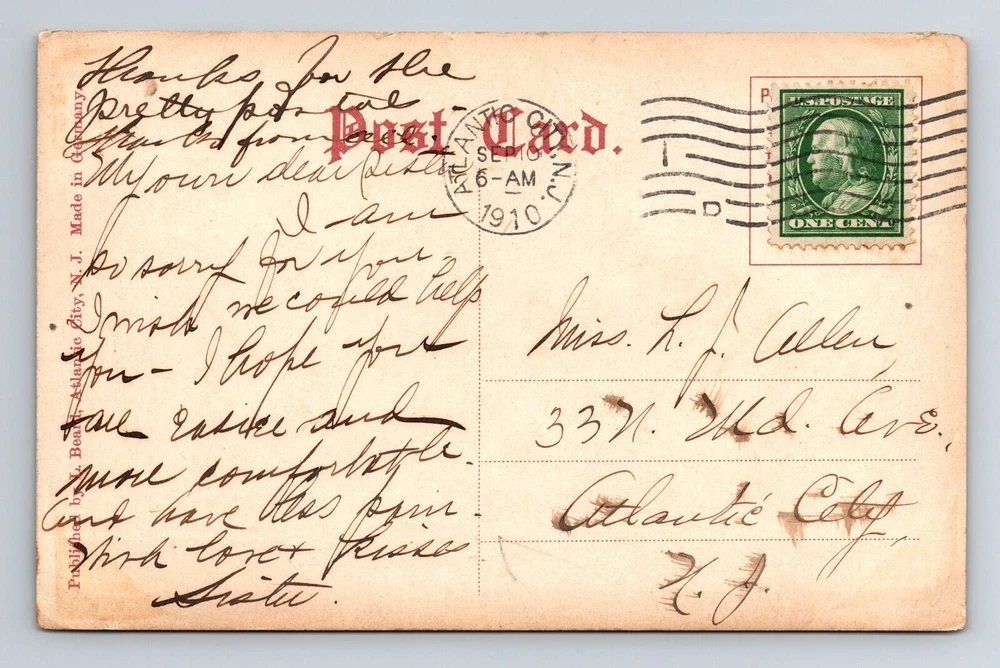 Thanks for the
pretty postals -
thanks from all.
My own dear Sister
I am
so sorry for you.
I wish we could help
you - I hope you
are easier and
more comfortable.
and have less pain.
With love + kisses
Sister.
Post Card.
ATLANTIC CITY, N.J.
SEP 10
6-AM
1910
U.S. POSTAGE
ONE CENT
Miss. L. J. Allen,
33 N. Md. Ave.,
Atlantic City,
N. J.
Published by L. Beard, Atlantic City, N. J. Made in Germany